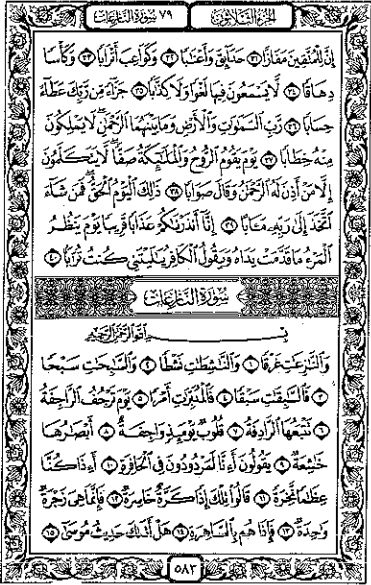 الجزء الثلاثون ٧٩ سورة النازعات
إِنَّ لِلْمُتَّقِينَ مَفَازًا ٣١ حَدَآئِقَ وَأَعْنَٰبًا ٣٢ وَكَوَاعِبَ أَتْرَابًا ٣٣ وَكَأْسًا
دِهَاقًا ٣٤ لَّا يَسْمَعُونَ فِيهَا لَغْوًا وَلَا كِذَّٰبًا ٣٥ جَزَآءً مِّن رَّبِّكَ عَطَآءً
حِسَابًا ٣٦ رَّبِّ ٱلسَّمَٰوَٰتِ وَٱلْأَرْضِ وَمَا بَيْنَهُمَا ٱلرَّحْمَٰنِ ۖ لَا يَمْلِكُونَ
مِنْهُ خِطَابًا ٣٧ يَوْمَ يَقُومُ ٱلرُّوحُ وَٱلْمَلَٰٓئِكَةُ صَفًّا ۖ لَّا يَتَكَلَّمُونَ
إِلَّا مَنْ أَذِنَ لَهُ ٱلرَّحْمَٰنُ وَقَالَ صَوَابًا ٣٨ ذَٰلِكَ ٱلْيَوْمُ ٱلْحَقُّ ۖ فَمَن شَآءَ
ٱتَّخَذَ إِلَىٰ رَبِّهِۦ مَـَٔابًا ٣٩ إِنَّآ أَنذَرْنَٰكُمْ عَذَابًا قَرِيبًا يَوْمَ يَنظُرُ
ٱلْمَرْءُ مَا قَدَّمَتْ يَدَاهُ وَيَقُولُ ٱلْكَافِرُ يَٰلَيْتَنِى كُنتُ تُرَٰبًۢا ٤٠
سُورَةُ النَّازِعَاتِ
بِسْمِ ٱللَّهِ ٱلرَّحْمَٰنِ ٱلرَّحِيمِ
وَٱلنَّٰزِعَٰتِ غَرْقًا ١ وَٱلنَّٰشِطَٰتِ نَشْطًا ٢ وَٱلسَّٰبِحَٰتِ سَبْحًا
٣ فَٱلسَّٰبِقَٰتِ سَبْقًا ٤ فَٱلْمُدَبِّرَٰتِ أَمْرًا ٥ يَوْمَ تَرْجُفُ ٱلرَّاجِفَةُ
٦ تَتْبَعُهَا ٱلرَّادِفَةُ ٧ قُلُوبٌ يَوْمَئِذٍ وَاجِفَةٌ ٨ أَبْصَٰرُهَا
خَٰشِعَةٌ ٩ يَقُولُونَ أَءِنَّا لَمَرْدُودُونَ فِى ٱلْحَافِرَةِ ١٠ أَءِذَا كُنَّا
عِظَٰمًا نَّخِرَةً ١١ قَالُوا۟ تِلْكَ إِذًا كَرَّةٌ خَاسِرَةٌ ١٢ فَإِنَّمَا هِىَ زَجْرَةٌ
وَٰحِدَةٌ ١٣ فَإِذَا هُم بِٱلسَّاهِرَةِ ١٤ هَلْ أَتَىٰكَ حَدِيثُ مُوسَىٰٓ ١٥
٥٨٣